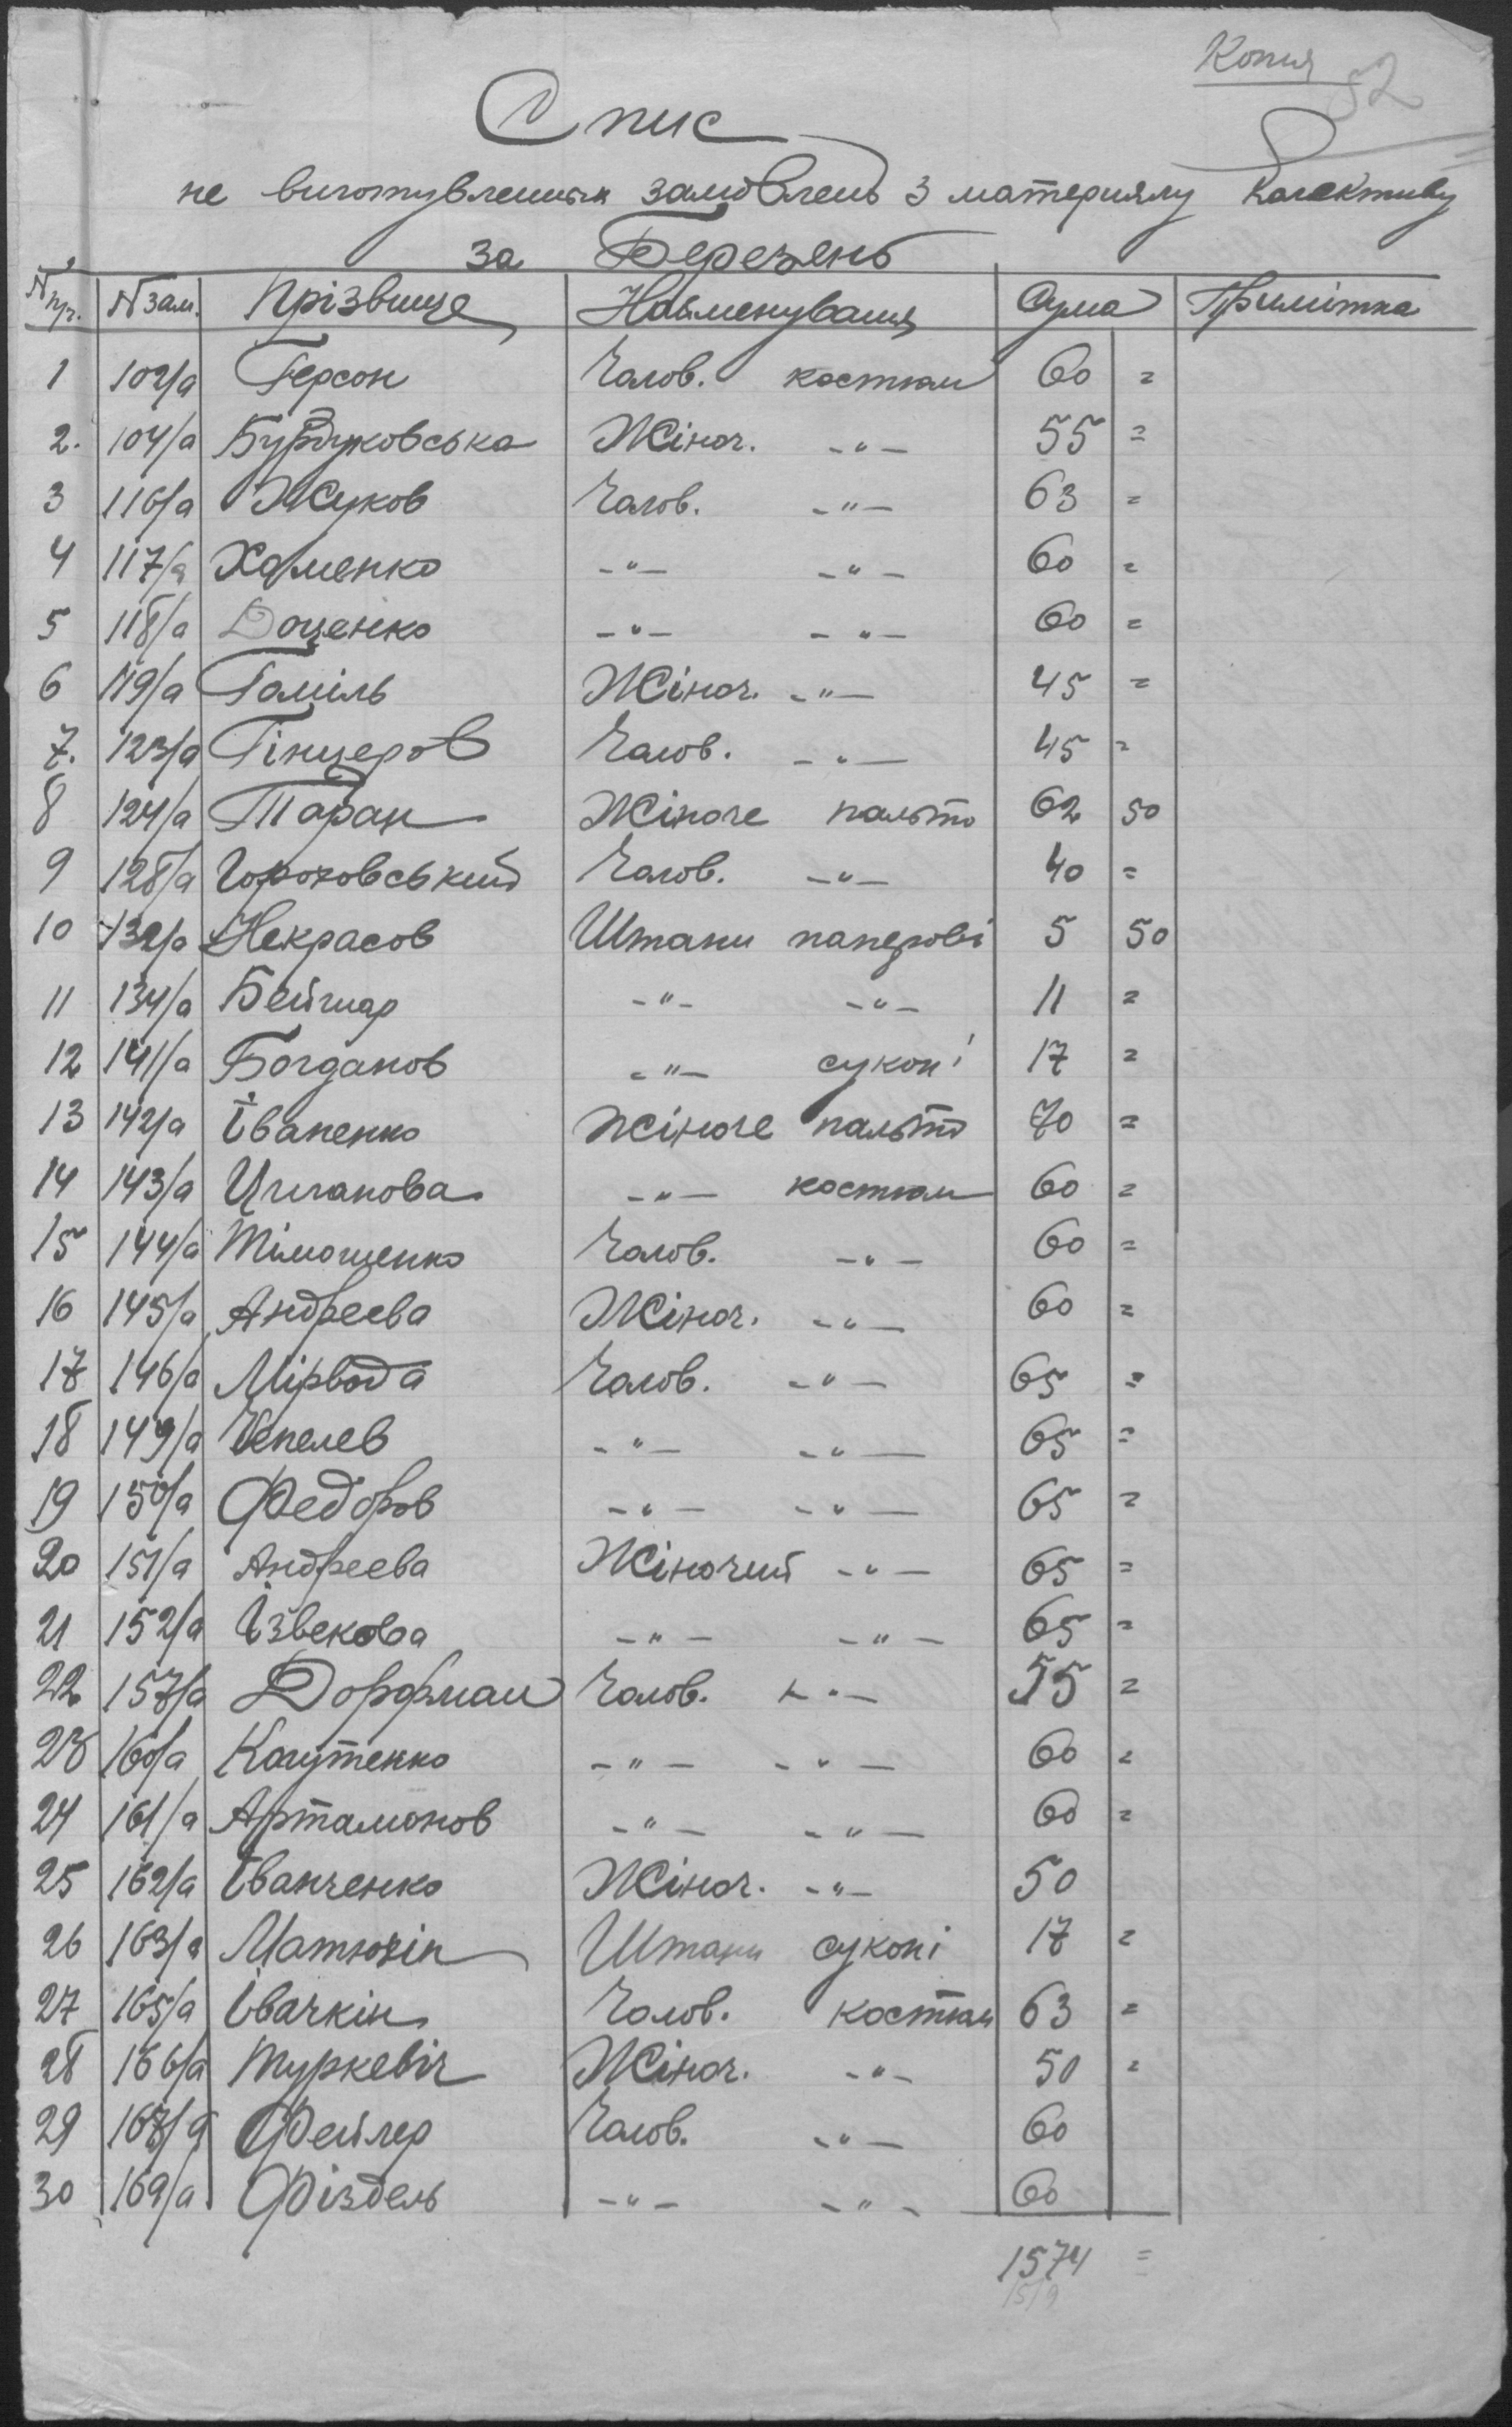 Копия
52
Спис
не виготувленных замовлень з материялу колективу
за Березень
№ пр. № зам. Прізвище Найменування Сума Примітка
1 102/а Герсон Чолов. костюм 60 =
2. 104/а Бурдуковська Жіноч. -"- 55 =
3 116/а Жуков Чолов. -"- 63 =
4 117/а Хоменко -"- -"- 60 =
5 118/а Доценко -"- -"- 60 =
6 119/а Гаміль Жіноч. -"- 45 =
7. 123/а Гінцеров Чолов. -"- 45 =
8 124/а Таран Жіноче пальто 62 50
9 128/а Гороховський Чолов. -"- 40 =
10 132/а Некрасов Штани паперові 5 50
11 134/а -"- -"- 11 =
12 141/а Богданов -"- суконі 17 =
13 142/а Іваненко Жіноче пальто 70 =
14 143/а Циганова -"- костюм 60 =
15 144/а Тімошенко Чолов. -"- 60 =
16 145/а Андреева Жіноч. -"- 60 =
17 146/а Мірвода Чолов. -"- 65 =
18 149/а Чепелев -"- -"- 65 =
19 150/а Федоров -"- -"- 65 =
20 151/а Андреева Жіночий -"- 65 =
21 152/а Ізвекова -"- -"- 65 =
22 157/а Дорфман Чолов. -"- 55 =
23 160/а Когутенко -"- -"- 60 =
24 161/а Артамонов -"- -"- 60 =
25 162/а Іванченко Жіноч. -"- 50
26 163/а Матюхін Штани суконі 17 =
27 165/а Івачкін Чолов. костюм 63 =
28 166/а Туркевіч Жіноч. -"- 50 =
29 167/а Фейлер Чолов. -"- 60
30 169/а Фіздель -"- -"- 60
1574 =